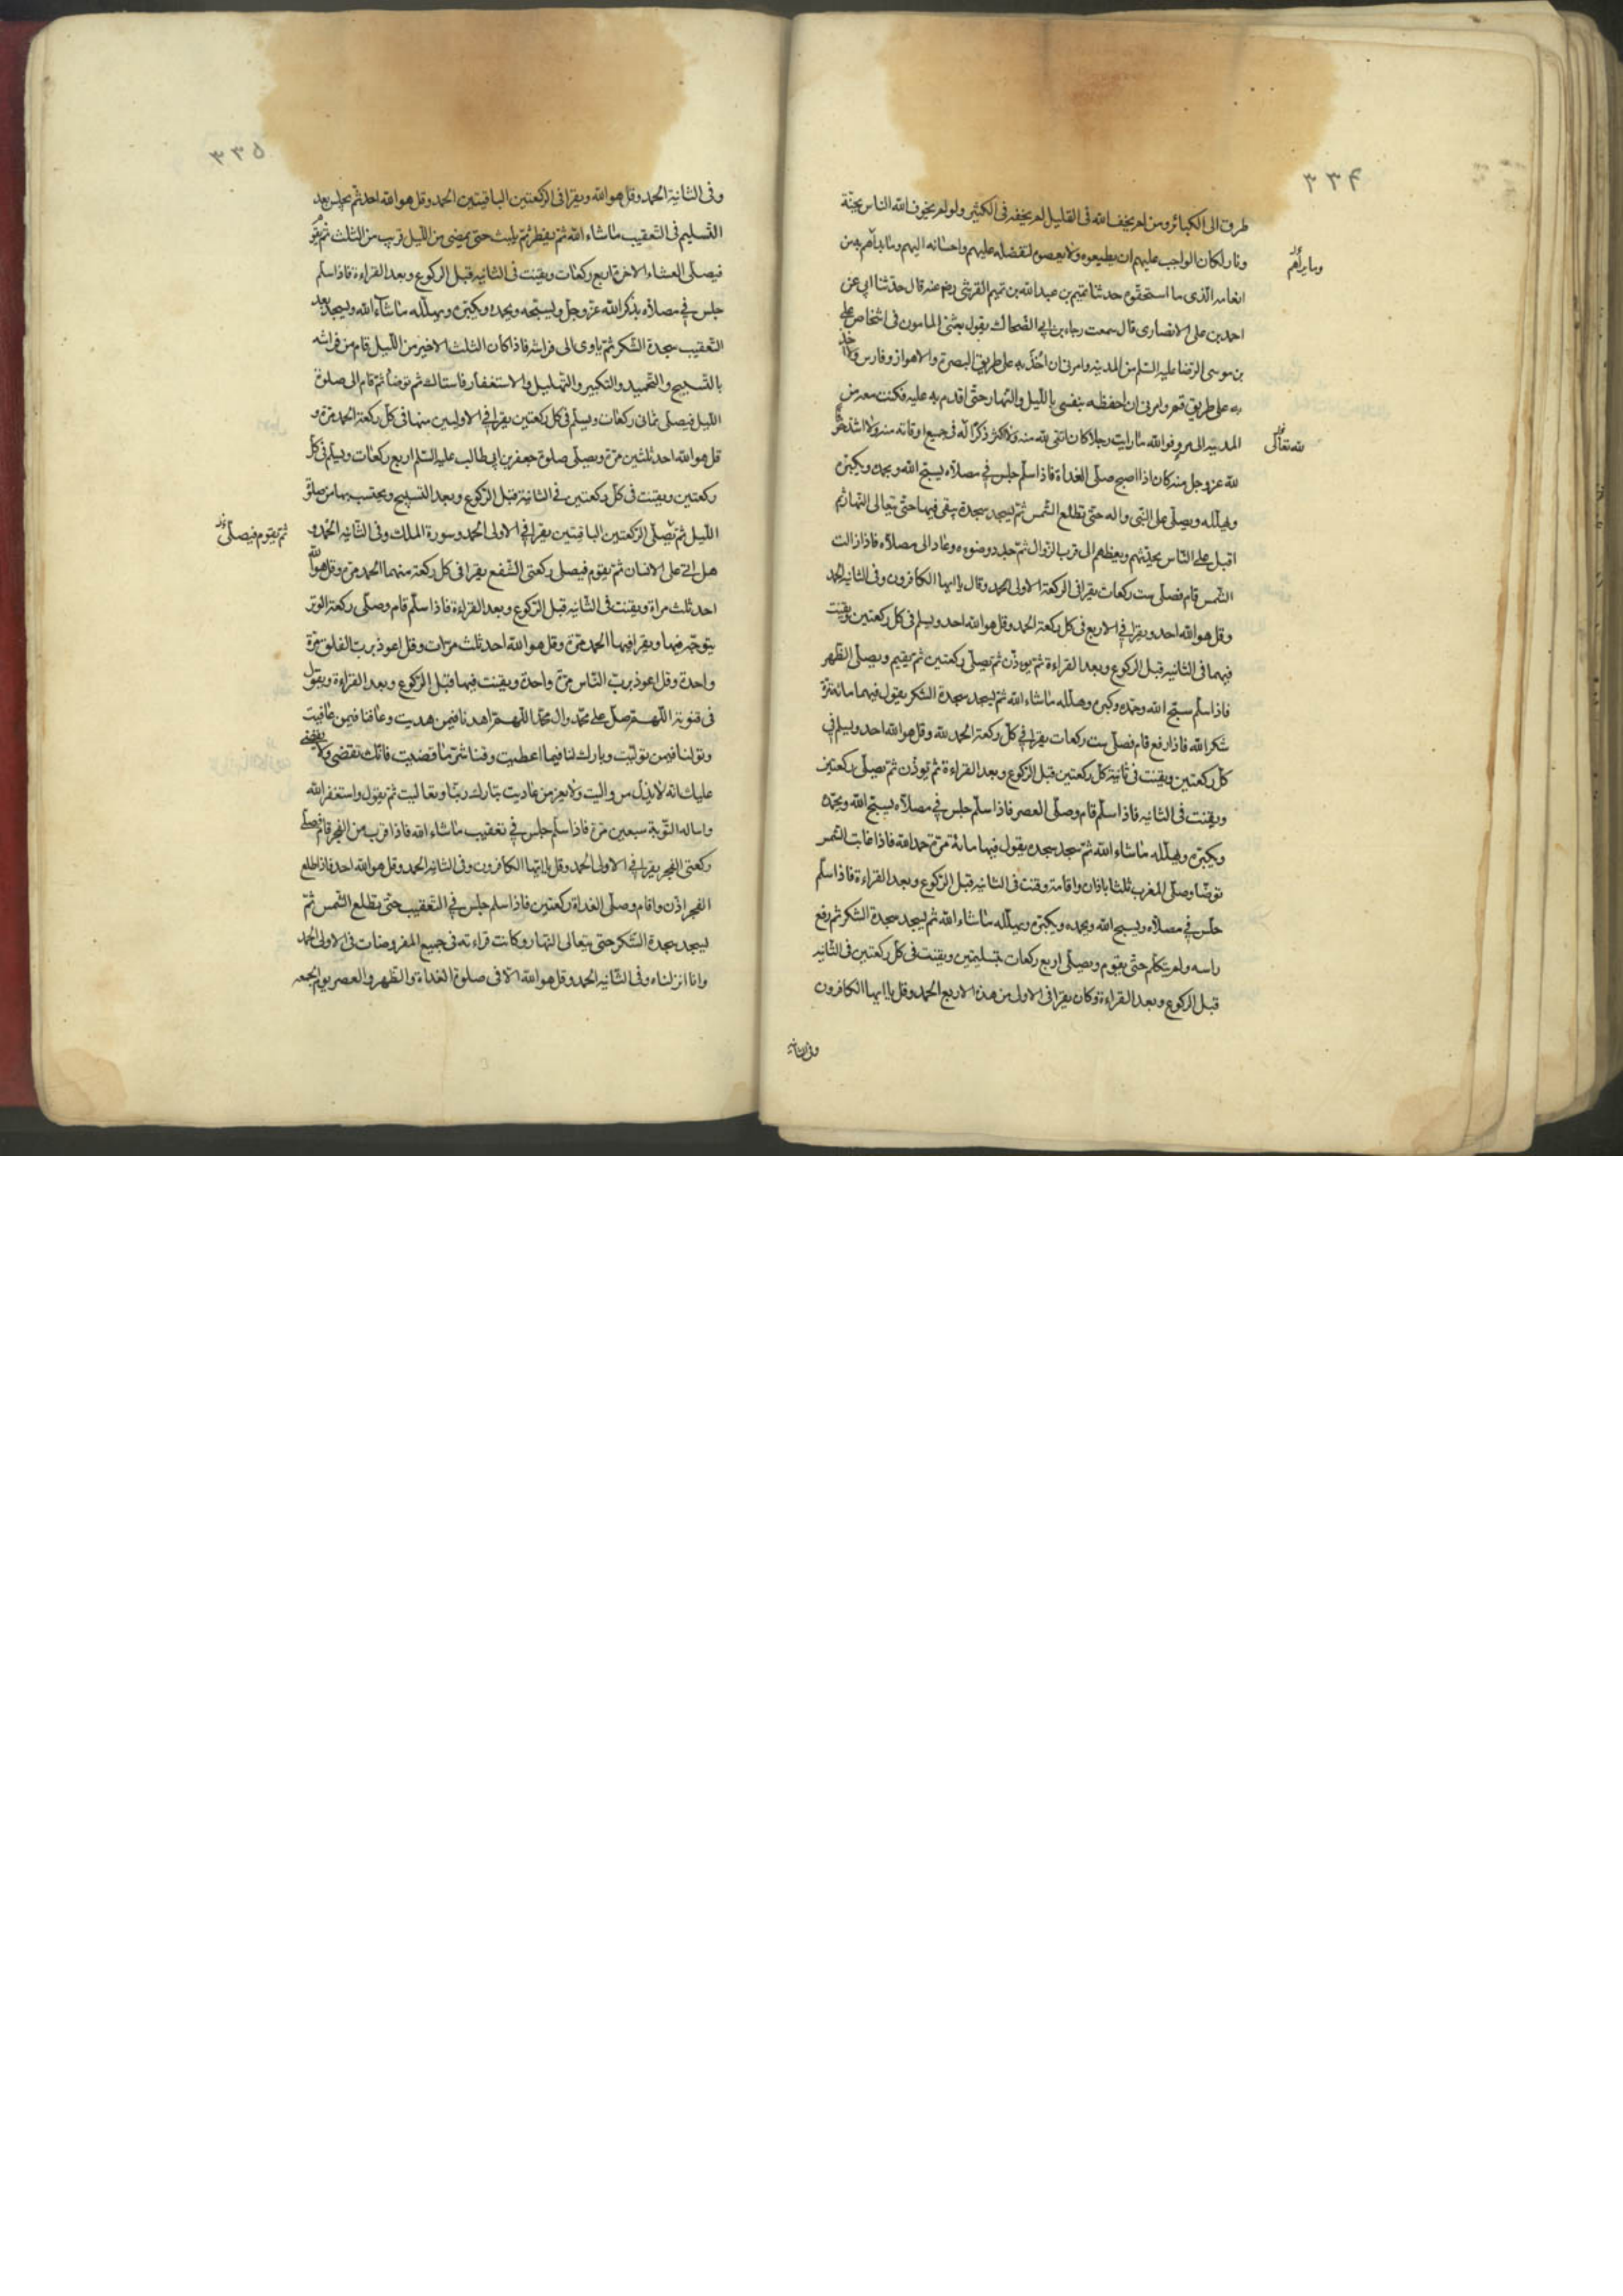 ۳۳۴
طرق الى الكبائر ومن لم يخف الله فى القليل لم يخفه فى الكثير ولو لم يخوف الله الناس بجنة
ونار لكان الواجب عليهم ان يطيعوه ولا يعصوه لتفضله عليهم واحسانه اليهم وما بداهم به من
انعامه الذى ما استحقوه حدثنا تميم بن عبد الله بن تميم القرشى رضى عنه قال حدثنا ابى عن
احمد بن على الانصارى قال سمعت رجاء بن ابى الضحاك يقول بعثنى المامون فى اشخاص على
بن موسى الرضا عليه السلم من المدينه وامرنى ان اخذ به على طريق البصرة والاهواز وفارس ولا اخذ
به على طريق قم وامرنى ان احفظه بنفسى بالليل والنهار حتى اقدم به عليه فكنت معه من
المدينه الى مرو فو الله ما رايت رجلا كان اتقى لله منه ولا اكثر ذكرا له فى جميع اوقاته منه ولا اشد خوفا
لله عز وجل منه كان اذا اصبح صلى الغداة فاذا سلم جلس فى مصلاه يسبح الله ويحمده ويكبره
ويهلله ويصلى على النبى واله حتى تطلع الشمس ثم يسجد سجدة يبقى فيها حتى يتعالى النهار ثم
اقبل على الناس يحدثهم ويعظهم الى قرب الزوال ثم جدد وضوءه وعاد الى مصلاه فاذا زالت
الشمس قام فصلى ست ركعات يقرا فى الركعة الاولى الحمد وقال يا ايها الكافرون وفى الثانيه الحمد
وقل هو الله احد ويقرا فى الاربع فى كل ركعة الحمد وقل هو الله احد ويسلم فى كل ركعتين ويقنت
فيهما فى الثانيه قبل الركوع وبعد القراءة ثم يوذن ثم يصلى ركعتين ثم يقيم ويصلى الظهر
فاذا سلم سبح الله وحمده وكبره وهلله ما شاء الله ثم يسجد سجدة الشكر يقول فيهما مائة مرة
شكرا لله فاذا رفع قام فصلى ست ركعات يقرا فى كل ركعة الحمد لله وقل هو الله احد ويسلم فى
كل ركعتين ويقنت فى ثانية كل ركعتين قبل الركوع وبعد القراءة ثم يوذن ثم يصلى ركعتين
ويقنت فى الثانيه فاذا سلم قام وصلى العصر فاذا سلم جلس فى مصلاه يسبح الله ويحمده
ويكبره ويهلله ما شاء الله ثم سجد سجده يقول فيها مائة مرة حمدا لله فاذا غابت الشمس
توضا وصلى المغرب ثلثا باذان واقامة وقنت فى الثانيه قبل الركوع وبعد القراءة فاذا سلم
جلس فى مصلاه ويسبح الله ويحمده ويكبره ويهلله ما شاء الله ثم يسجد سجدة الشكر ثم رفع
راسه ولم يتكلم حتى يقوم ويصلى اربع ركعات بتسليمتين ويقنت فى كل ركعتين فى الثانيه
قبل الركوع وبعد القراءة وكان يقرا فى الاولى من هذه الاربع الحمد وقل يا ايها الكافرون
وفى الثانية
لله تعالى
۳۳۵
وفى الثانية الحمد وقل هو الله ويقرا فى الركعتين الباقيتين الحمد وقل هو الله احد ثم يجلس بعد
التسليم فى التعقيب ما شاء الله ثم يفطر ثم يلبث حتى يمضى من الليل قريب من الثلث ثم يقوم
فيصلى العشاء الاخرة اربع ركعات ويقنت فى الثانيه قبل الركوع وبعد القراءة فاذا سلم
جلس فى مصلاه يذكر الله عز وجل ويسبحه ويحمده ويكبره ويهلله ما شاء الله ويسجد بعد
التعقيب سجدة الشكر ثم ياوى الى فراشه فاذا كان الثلث الاخير من الليل قام من فراشه
بالتسبيح والتحميد والتكبير والتهليل والاستغفار فاستاك ثم توضا ثم قام الى صلوة
الليل فيصلى ثمانى ركعات ويسلم فى كل ركعتين يقرا فى الاوليين منها فى كل ركعة الحمد مرة و
قل هو الله احد ثلثين مرة ويصلى صلوة جعفر بن ابى طالب عليه السلم اربع ركعات ويسلم فى كل
ركعتين ويقنت فى كل ركعتين فى الثانية قبل الركوع وبعد التسبيح ويحتسب بها من صلوة
الليل ثم يصلى الركعتين الباقيتين يقرا فى الاولى الحمد وسورة الملك وفى الثانيه الحمد و
هل اتى على الانسان ثم يقوم فيصلى ركعتى الشفع يقرا فى كل ركعة منهما الحمد مرة وقل هو الله
احد ثلث مراة ويقنت فى الثانيه قبل الركوع وبعد القراءة فاذا سلم قام وصلى ركعة الوتر
يتوجه فيها ويقرا فيها الحمد مرة وقل هو الله احد ثلث مرات وقل اعوذ برب الفلق مرة
واحدة وقل اعوذ برب الناس مرة واحدة ويقنت فيها قبل الركوع وبعد القراءة ويقول
فى قنوته اللهم صل على محمد وال محمد اللهم اهدنا فيمن هديت وعافنا فيمن عافيت
وتولنا فيمن توليت وبارك لنا فيما اعطيت وقنا شر ما قضيت فانك تقضى ولا يقضى
عليك انه لا يذل من واليت ولا يعز من عاديت تباركت ربنا وتعاليت ثم يقول واستغفر الله
واساله التوبة سبعين مرة فاذا سلم جلس فى تعقيب ما شاء الله فاذا قرب من الفجر قام فصلى
ركعتى الفجر يقرا فى الاولى الحمد وقل يا ايها الكافرون وفى الثانيه الحمد وقل هو الله احد فاذا طلع
الفجر اذن واقام وصلى الغداة ركعتين فاذا سلم جلس فى التعقيب حتى تطلع الشمس ثم
يسجد سجدة الشكر حتى يتعالى النهار وكانت قراءته فى جميع المفروضات فى الاولى الحمد
وانا انزلناه وفى الثانيه الحمد وقل هو الله الا فى صلوة الغداة والظهر والعصر يوم الجمعه
ثم يقوم فيصلى